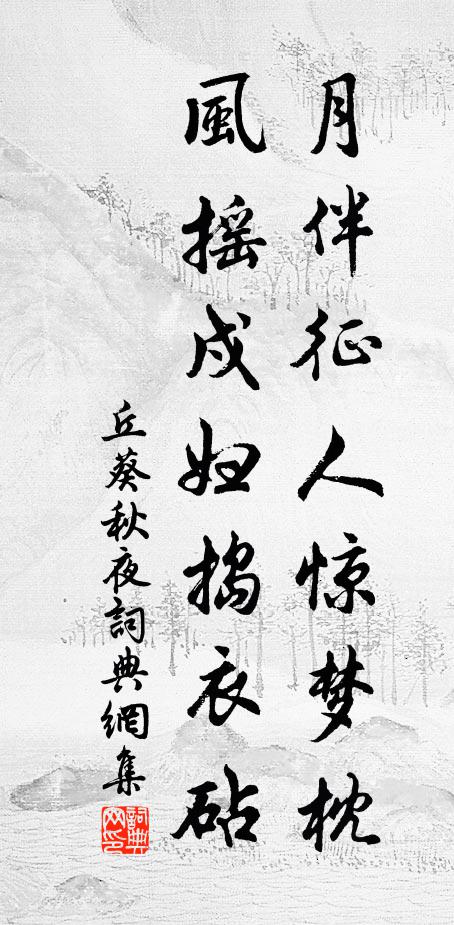 月伴征人惊梦枕
風摇戍妇搗衣砧
丘葵秋夜詞典網集
詞典网印